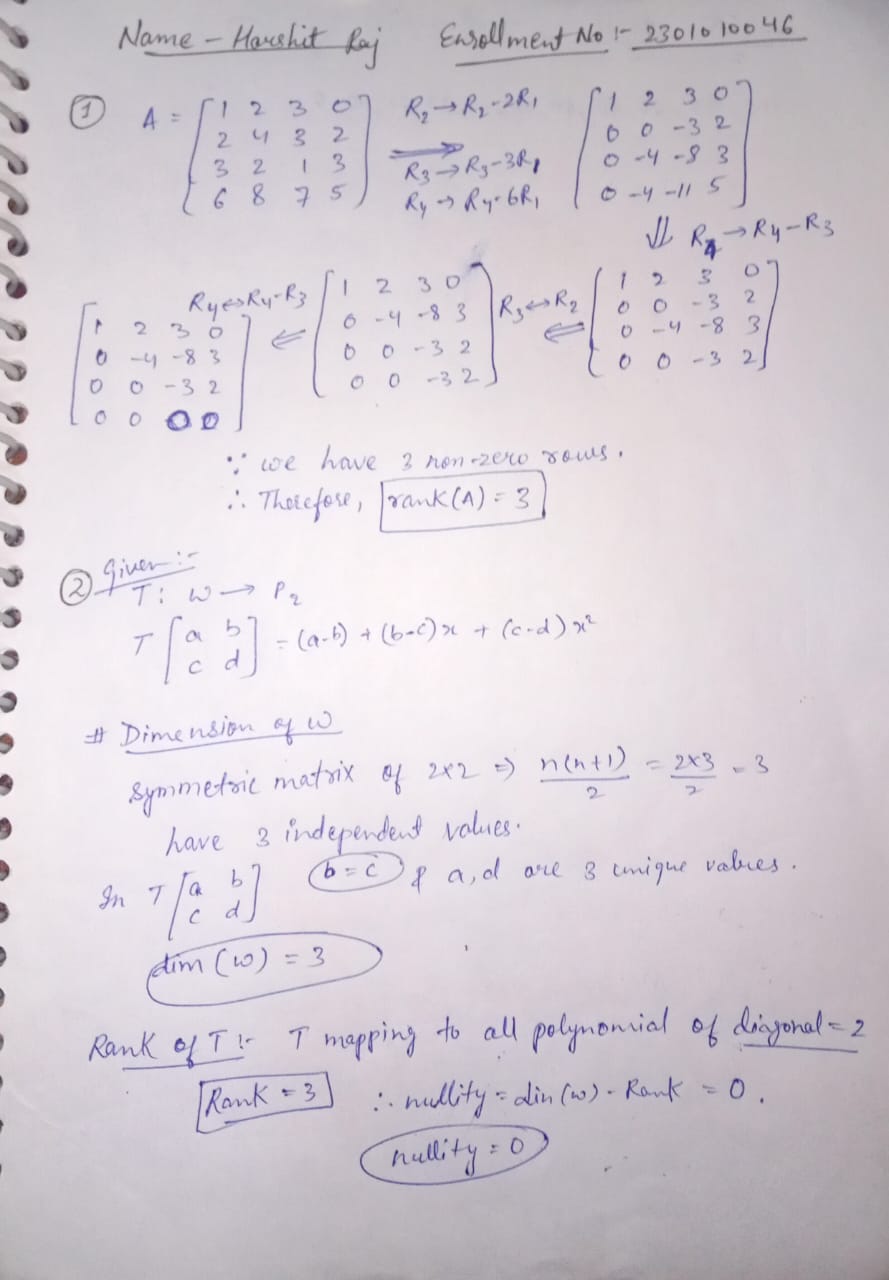 Name - Harshit Raj Enrollment No :- 2301010046
① A = [1 2 3 0 R₂→R₂-2R₁ [1 2 3 0
2 4 3 2 0 0 -3 2
3 2 1 3 R₃→R₃-3R₁ 0 -4 -8 3
6 8 7 5] R₄→R₄-6R₁ 0 -4 -11 5]
⇓ R₄→R₄-R₃
R₄↔R₄-R₃ [1 2 3 0 R₃↔R₂ [1 2 3 0
[1 2 3 0 0 -4 -8 3 0 0 -3 2
0 -4 -8 3 ⇐ 0 0 -3 2 ⇐ 0 -4 -8 3
0 0 -3 2 0 0 -3 2] 0 0 -3 2]
0 0 0 0]
∵ we have 3 non-zero rows.
∴ Therefore, rank(A) = 3
② Given :-
T: W → P₂
T [a b
c d] = (a-b) + (b-c)x + (c-d)x²
# Dimension of W
Symmetric matrix of 2×2 ⇒ n(n+1)/2 = 2×3/2 = 3
have 3 independent values.
In T [a b
c d] b=c & a,d are 3 unique values.
dim (W) = 3
Rank of T :- T mapping to all polynomial of diagonal = 2
Rank = 3 ∴ nullity = dim (W) - Rank = 0.
nullity = 0